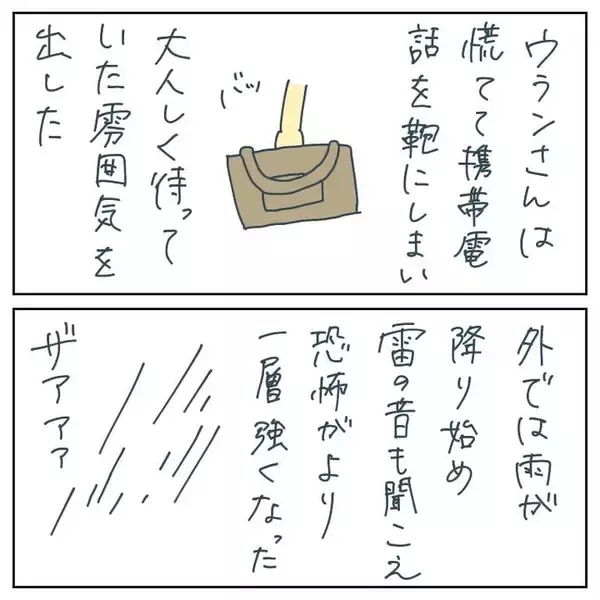 ウランさんは
慌てて携帯電
話を鞄にしまい
バッ
大人しく待って
いた雰囲気を
出した
外では雨が
降り始め
雷の音も聞こえ
恐怖がより
一層強くなった
ザァァァァ